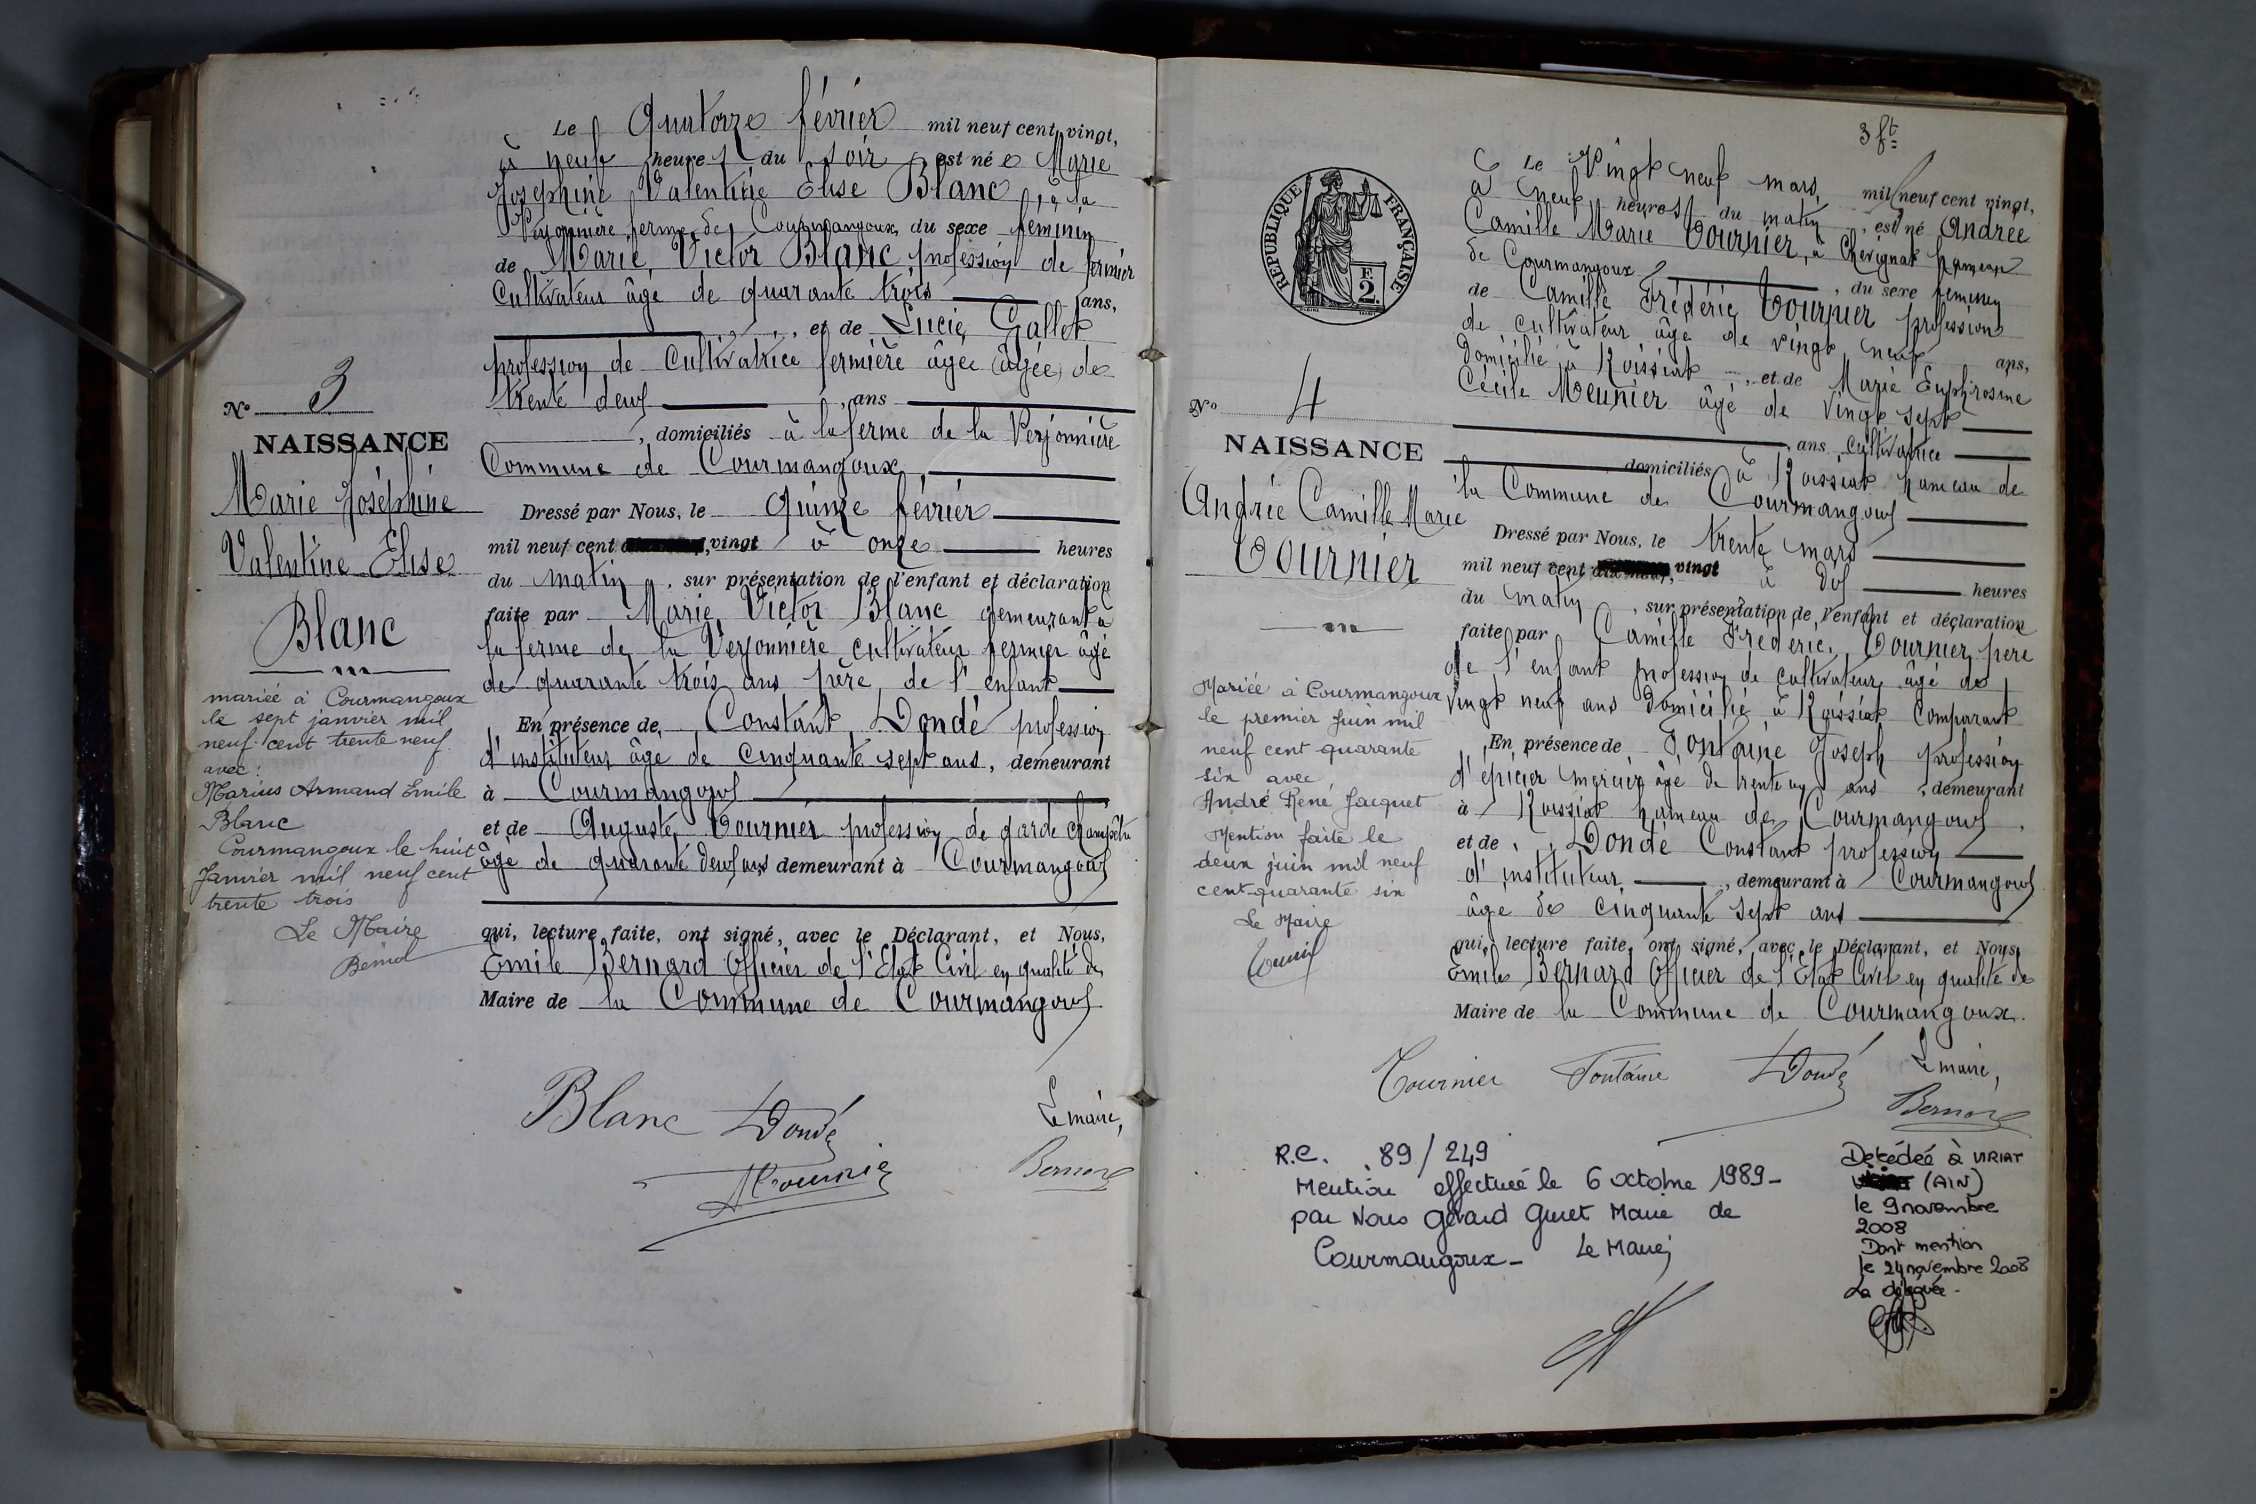 Le Quatorze février mil neuf cent vingt,
à neuf heures du soir est née Marie
Joséphine Valentine Elise Blanc, à la
ferme de Courmangoux, du sexe féminin
de Marie Victor Blanc profession de fermier
Cultivateur âgé de quarante trois ans,
, et de Lucie Gallet
profession de Cultivatrice fermière âgée (âgée) de
trente deux , ans
, domiciliés à la ferme de la Verjonnière
Commune de Courmangoux
Dressé par Nous, le quinze février
mil neuf cent vingt à onze heures
du matin, sur présentation de l'enfant et déclaration
faite par Marie Victor Blanc demeurant à
la ferme de la Verjonnière cultivateur fermier âgé
de quarante trois ans père de l'enfant
En présence de Constant Dondé profession
d'instituteur âgé de cinquante sept ans, demeurant
à Courmangoux
et de Auguste Tournier profession de garde champêtre
âgé de quarante deux ans demeurant à Courmangoux
qui, lecture faite, ont signé, avec le Déclarant, et Nous,
Emile Bernard Officier de l'Etat Civil en qualité de
Maire de la Commune de Courmangoux
Blanc Dondé Le maire,
Tournier Bernard
N° 3
NAISSANCE
Marie Joséphine
Valentine Elise
Blanc
mariée à Courmangoux
le sept janvier mil
neuf cent trente neuf
avec :
Marius Armand Emile
Blanc
Courmangoux le huit
Janvier mil neuf cent
trente trois
Le Maire
3 ft
REPUBLIQUE FRANÇAISE
F.
2.
Le Vingt neuf mars mil neuf cent vingt,
à neuf heures du matin, est né Andrée
Camille Marie Tournier, à Chevignat hameau
de Courmangoux, du sexe féminin
de Camille Frédéric Tournier profession
de cultivateur âgé de vingt neuf ans,
domicilié à Roissiat, et de Marie Euphrosine
Cécile Meunier âgé de vingt sept
, ans, Cultivatrice
domiciliés à Roissiat hameau de
la Commune de Courmangoux
Dressé par Nous, le trente mars
mil neuf cent dix-neuf, vingt à dix heures
du matin, sur présentation de l'enfant et déclaration
faite par Camille Frédéric Tournier père
de l'enfant profession de cultivateur âgé de
vingt neuf ans domicilié à Roissiat Comparant
En présence de Fontaine Joseph profession
d'épicier mercier âgé de trente un ans, demeurant
à Roissiat hameau de Courmangoux,
et de Dondé Constant profession
d'instituteur, demeurant à Courmangoux
âgé de cinquante sept ans
qui, lecture faite, ont signé, avec le Déclarant, et Nous,
Emile Bernard Officier de l'Etat Civil en qualité de
Maire de la Commune de Courmangoux.
Tournier Fontaine Dondé Le maire,
Bernard
N° 4
NAISSANCE
Andrée Camille Marie
Tournier
Mariée à Courmangoux
le premier Juin mil
neuf cent quarante
six avec
André René Jacquet
Mention faite le
deux juin mil neuf
cent quarante six
Le Maire
R.C. 89/249
Mention effectuée le 6 octobre 1989-
par Nous Gérard Guret Maire de
Courmangoux- Le Maire,
Décédée à VIRIAT
(AIN)
le 9 novembre
2008
Dont mention
le 24 novembre 2008
La déléguée.